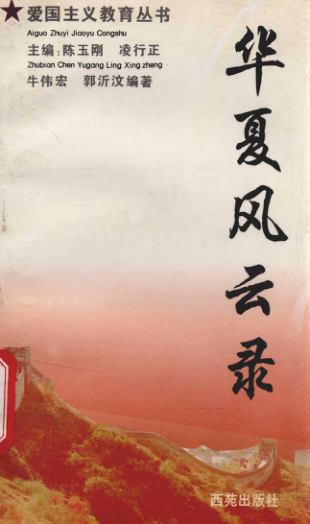 爱国主义教育丛书
Aiguo Zhuyi Jiaoyu Congshu
主编:陈玉刚 凌行正
Zhubian Chen Yugang Ling Xing zheng
牛伟宏 郭沂汶编著
华夏风云录
西苑出版社